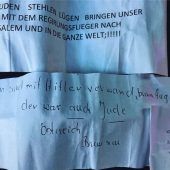 UDEN STEHLEN LÜGEN BRINGEN UNSER
MIT DEM REGIRUNGSFLIEGER NACH
SALEM UND IN DIE GANZE WELT;!!!!!
sind mit Hitler verwand,
der war auch Jude
Östreich
Braunau